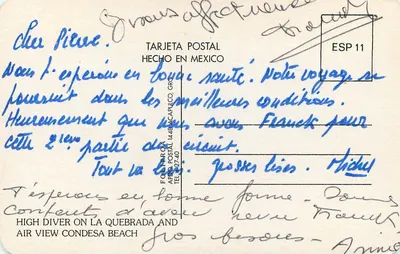 Grosses affectueuses
Franck
TARJETA POSTAL
HECHO EN MEXICO
ESP 11
Cher Pierre.
Nous t'espérons en bonne santé. Notre voyage se
poursuit dans les meilleures conditions.
Heureusement que nous avons Franck pour
cette 2ième partie du circuit.
Tout va bien. grosses bises. Michel
J'espère en bonne forme - Sommes
contents d'avoir revu Franck.
gros bisous - Annie
HIGH DIVER ON LA QUEBRADA AND
AIR VIEW CONDESA BEACH